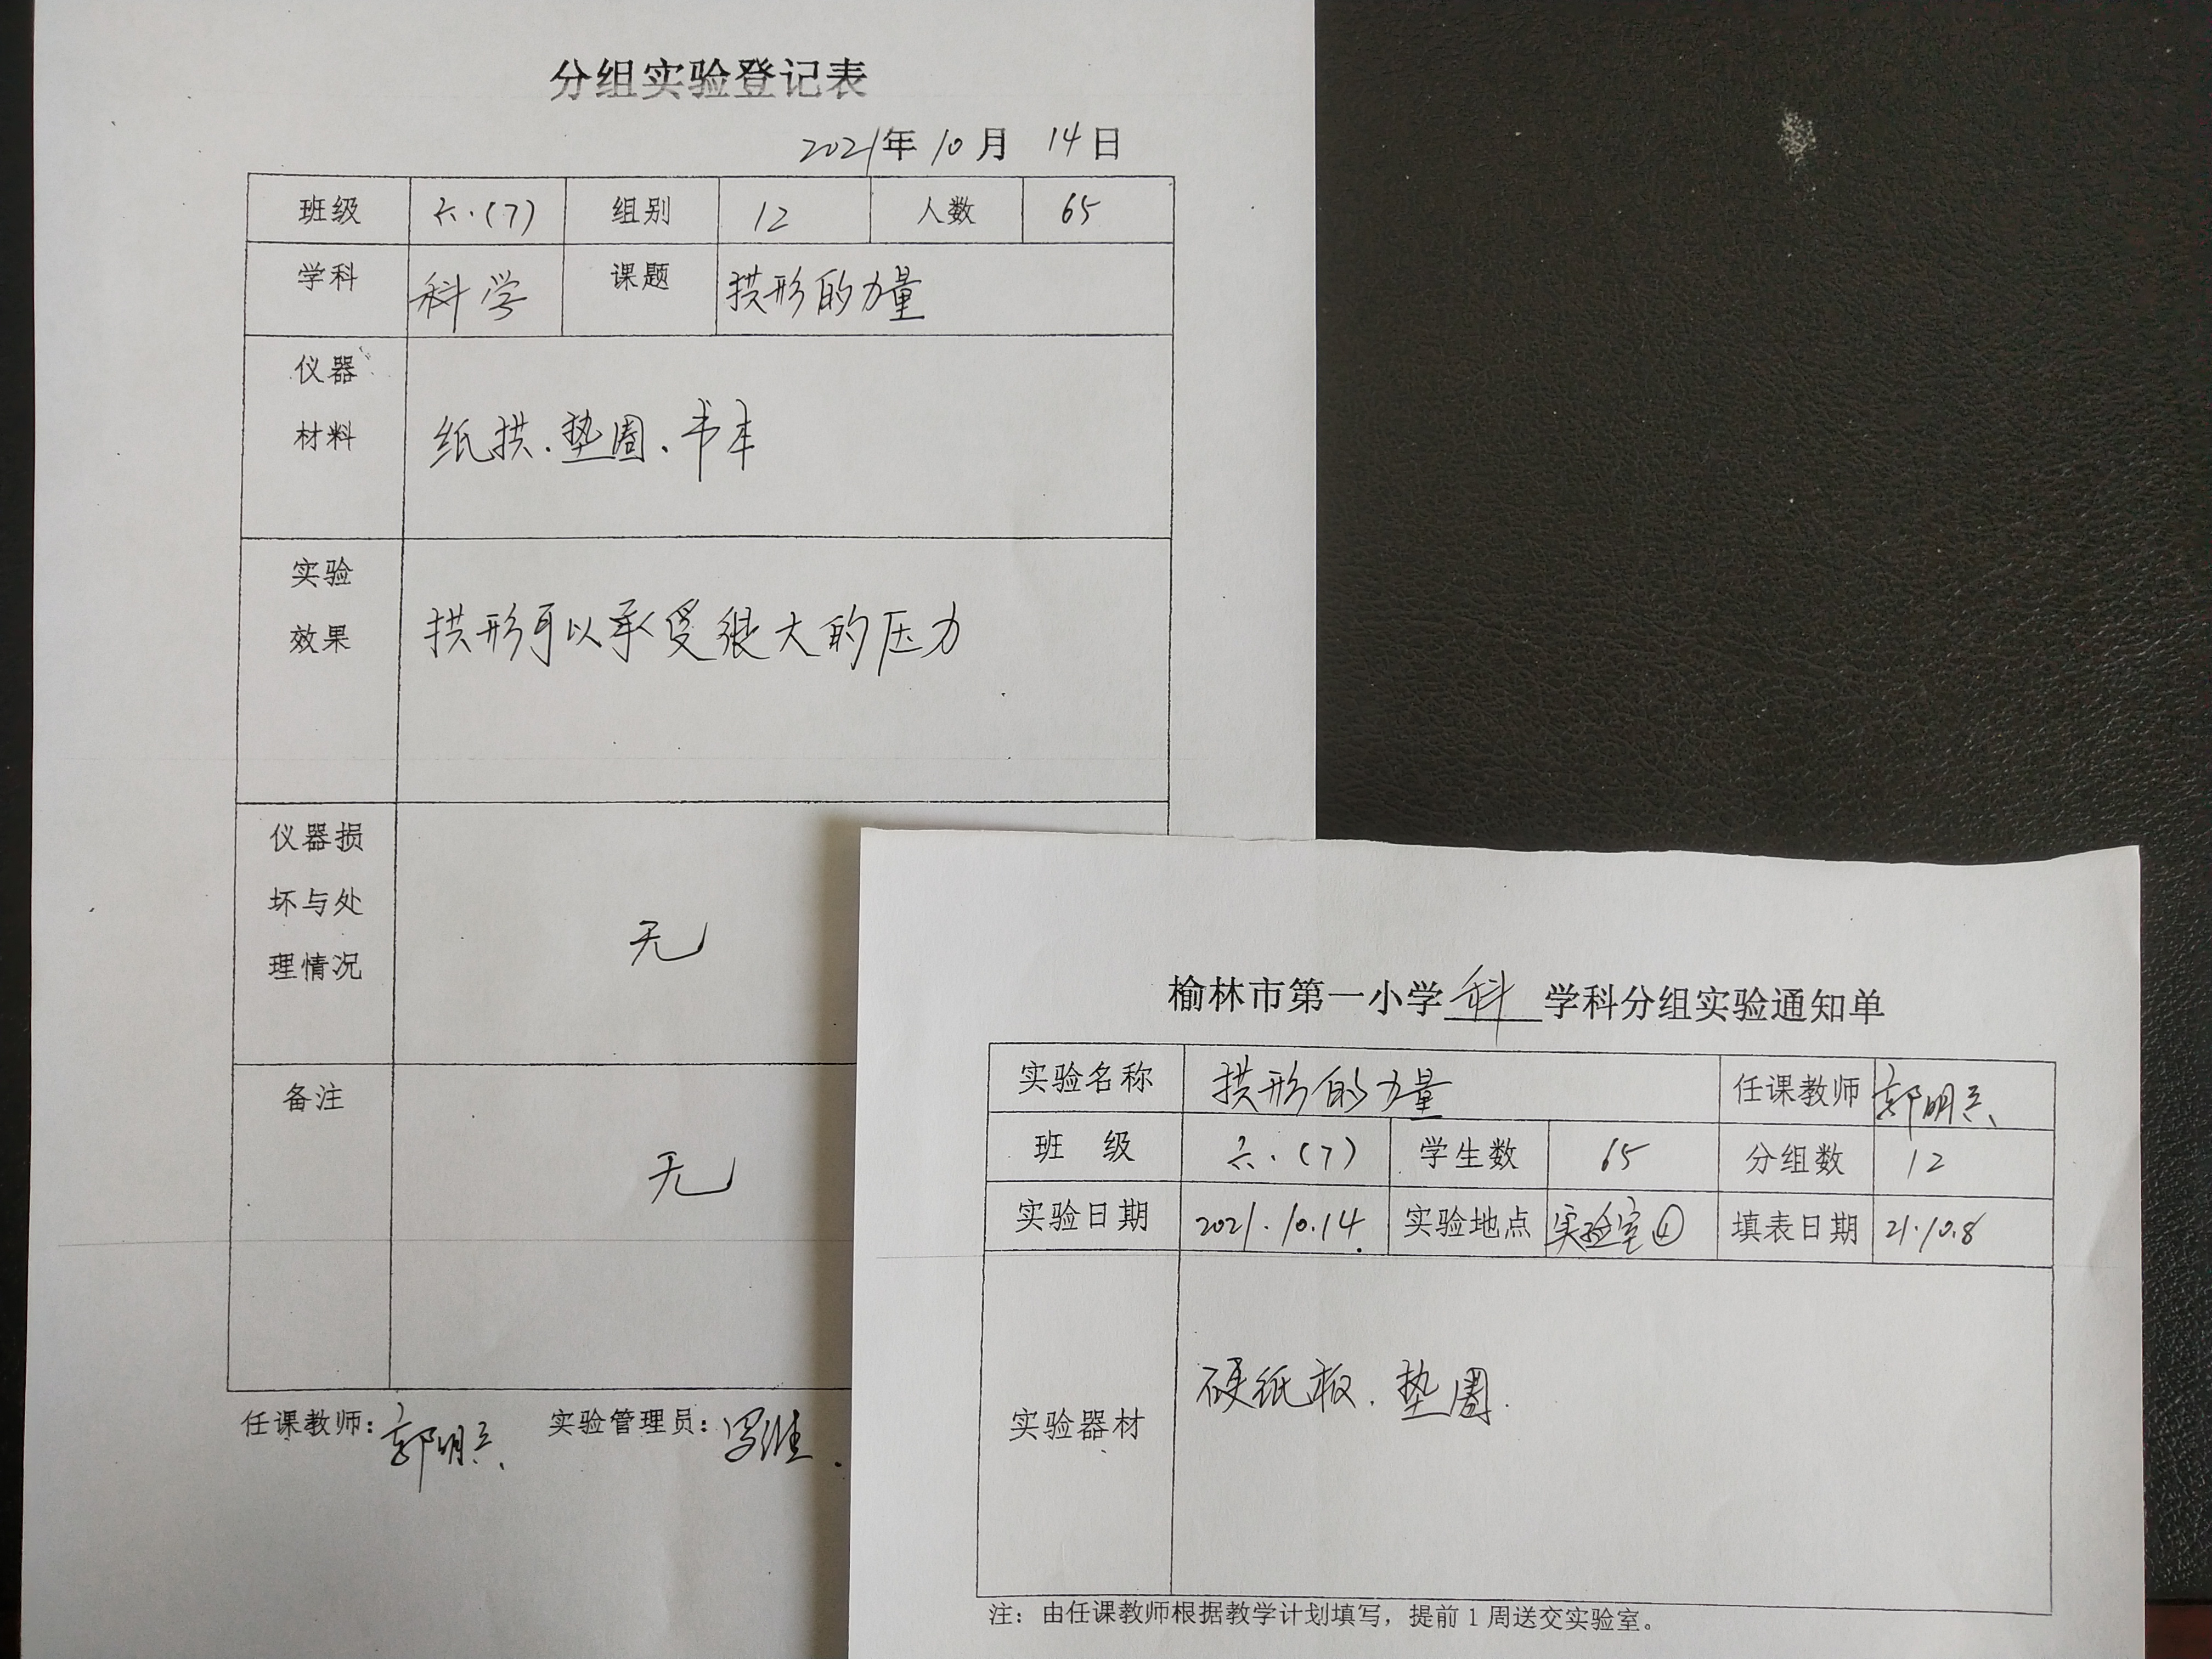 分组实验登记表
2021年10月14日
班级 六.(7) 组别 12 人数 65
学科 科学 课题 拱形的力量
仪器
材料
纸拱.垫圈.书本
实验
效果
拱形可以承受很大的压力
仪器损
坏与处
理情况
无
备注
无
任课教师:郭明 实验管理员:
榆林市第一小学科学科分组实验通知单
实验名称 拱形的力量 任课教师 郭明
班 级 六.(7) 学生数 65 分组数 12
实验日期 2021.10.14. 实验地点 实验室④ 填表日期 21.10.8
实验器材 硬纸板.垫圈.
注：由任课教师根据教学计划填写，提前1周送交实验室。